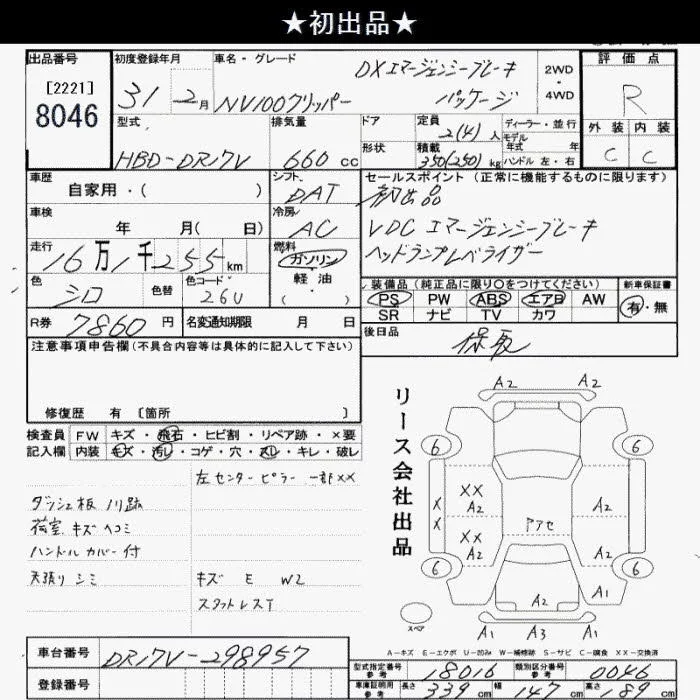 ★初出品★
出品番号
[2221]
8046
初度登録年月
31 2月
車名・グレード
DXエマージェンシーブレーキ
NV100クリッパー パッケージ
2WD
・
4WD
評価点
R
外装 内装
C C
型式
HBD-DR17V
排気量
660cc
ドア
形状
定員
2(4)人
積載
350(250)kg
ディーラー・並行
モデル
年式 年
ハンドル 左・右
車歴
自家用・( )
シフト
DAT
セールスポイント(正常に機能するものに限ります)
初出品
VDC エマージェンシーブレーキ
ヘッドランプレベライザー
車検
年 月( 日)
冷房
AC
走行
16万1千255km
燃料
ガソリン
・
軽油
・
( )
色
シロ
色替
色コード
26U
装備品(純正品に限り○をつけてください)
PS PW ABS エアB AW
SR ナビ TV カワ
新車保証書
有・無
R券
7860円
名変通知期限 月 日
後日品
保取
注意事項申告欄(不具合内容等は具体的に記入して下さい)
修復歴 有 〔箇所 〕
検査員
記入欄
FW キズ・飛石・ヒビ割・リペア跡・×要
内装 キズ・汚レ・コゲ・穴・スレ・キレ・破レ
左センターピラー一部××
ダッシュ板 ノリ跡
荷室 キズ ヘコミ
ハンドルカバー付
天張リ シミ
キズ E W2
スタットレスT
リース会社出品
A2 A2
6 6
X
X
XX
A2
XX
A2
アアセ
A2
A2
6 6
A2
A1
A1 A3 A1
スペア
A-キズ E-エクボ U-凹み W-補修跡 S-サビ C-腐食 XX-交換済
車台番号
DR17V-298957
登録番号
型式指定番号
参考
18016
類別区分番号
参考
0046
車庫証明用
参考
長さ
339cm
幅
147cm
高さ
cm